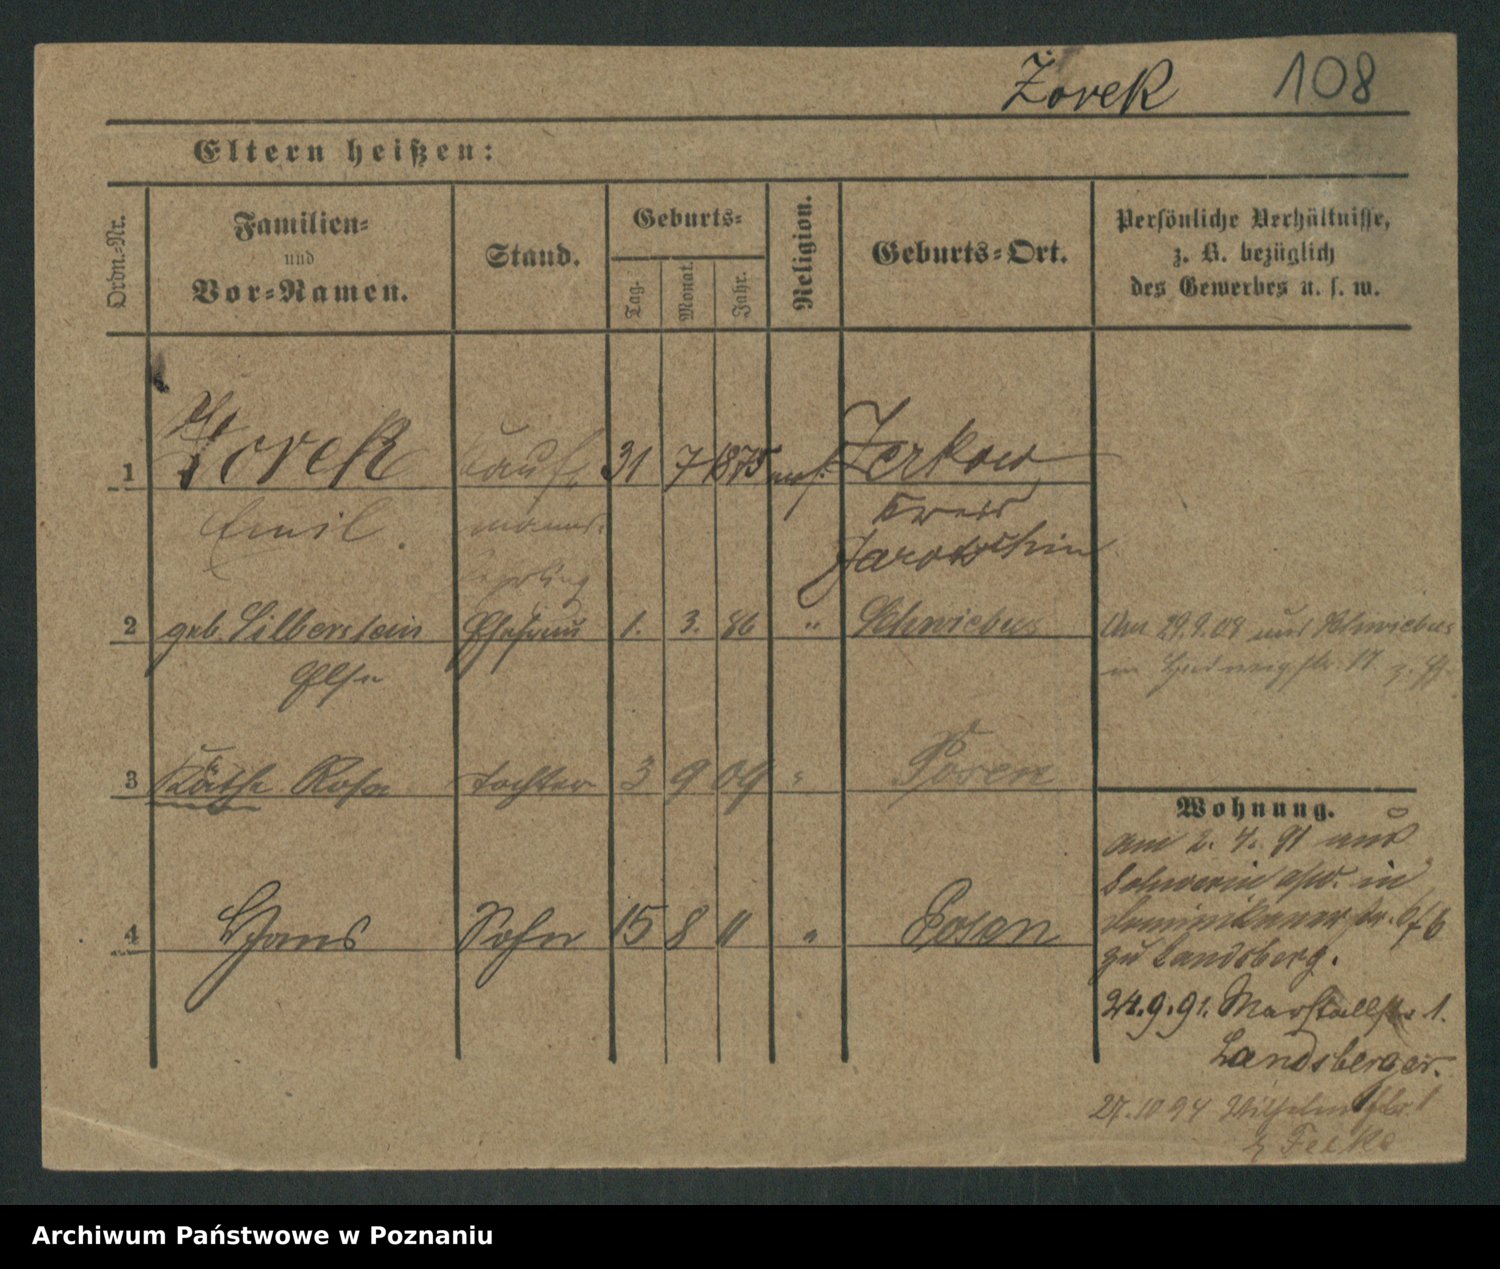 Zorek 108
Eltern heißen:
Ordn.-Nr.
Familien-
und
Vor-Namen.
Stand.
Geburts-
Tag.
Monat.
Jahr.
Religion.
Geburts-Ort.
Persönliche Verhältnisse,
z. B. bezüglich
des Gewerbes u. s. w.
1 Zorek Kauf- 31 7 1875 mos. Zerkow
Emil. manns- Kreis
Lehrling Jarotschin
2 geb. Silberstein Ehefrau 1. 3. 86 " Schwiebus Am 29.9.08 aus Schwiebus
Else in
3 Käthe Rosa Tochter 3 9 09 " Posen
4 Hans Sohn 15 8 11 " Posen
Wohnung.
am 2. 4. 91 aus
Schwerin a/W. in
Dominikanerstr.
zu Landsberg.
24.9.91. Marstallstr 1.
Landsberger.
27.10 94 Wilhelmstr. 1
z Feike
Archiwum Państwowe w Poznaniu